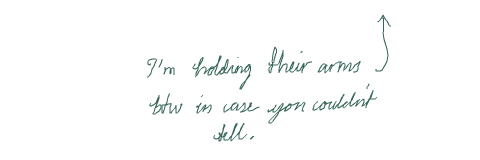 I'm holding their arms
btw in case you couldn't
tell.